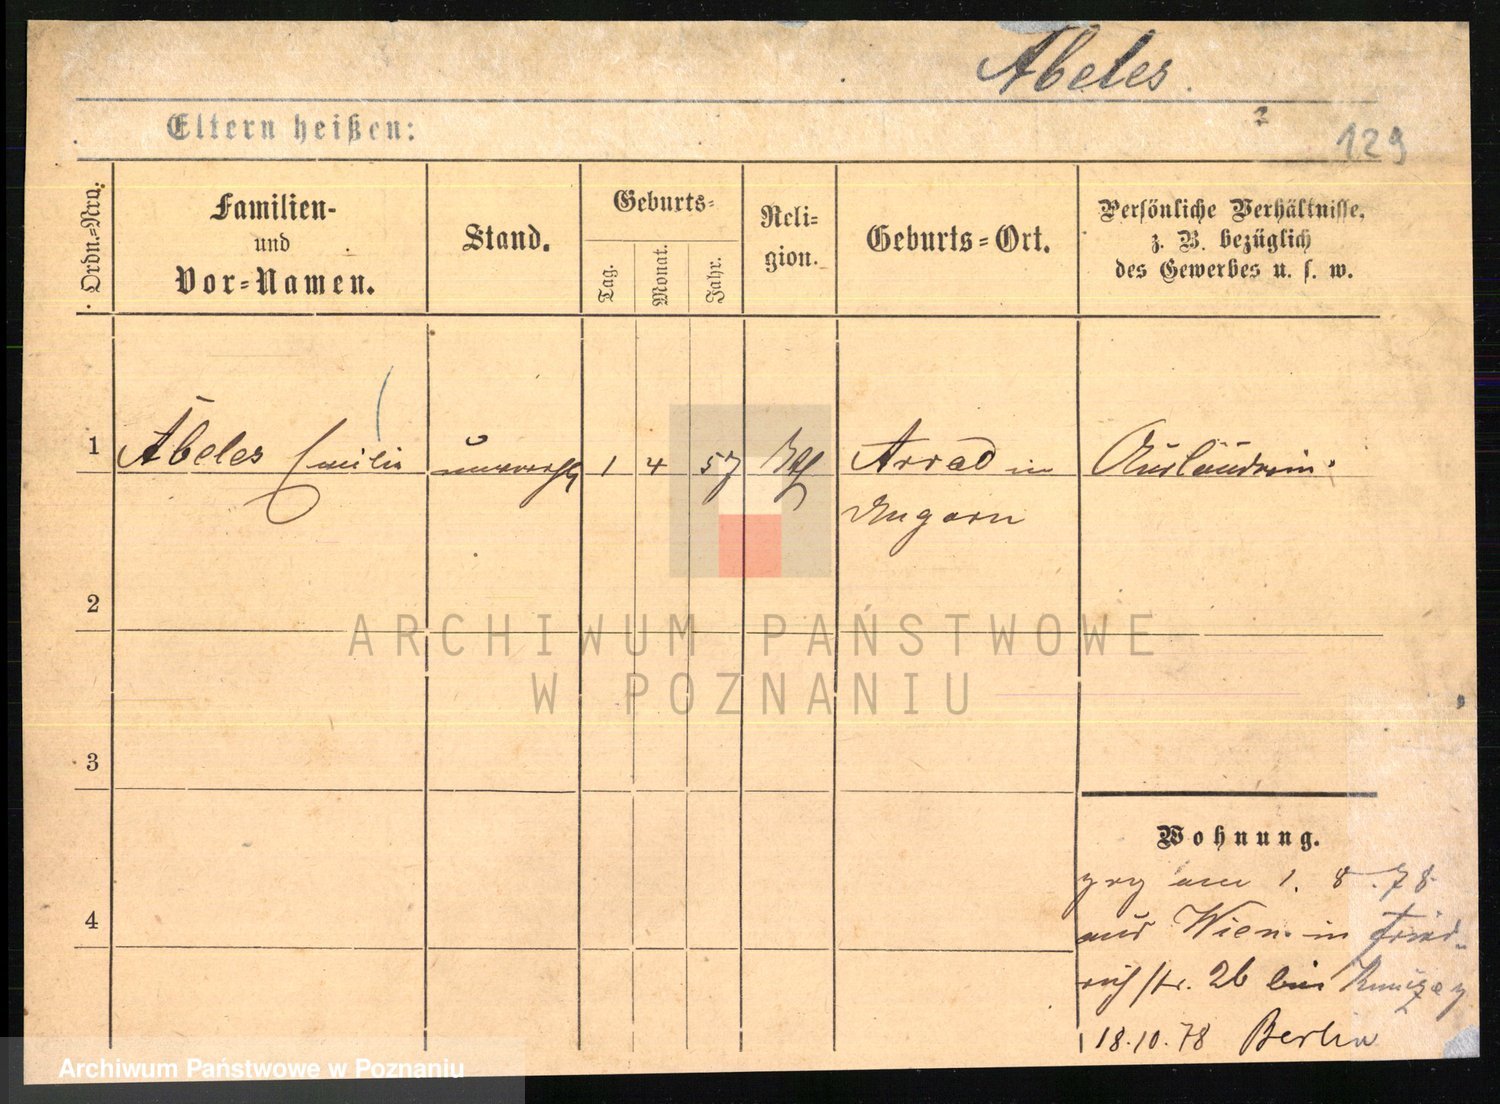 Abeles.
Eltern heißen:
129
Ordn.-Nro.
Familien-
und
Vor-Namen.
Stand.
Geburts-
Tag.
Monat.
Jahr.
Reli-
gion.
Geburts-Ort.
Persönliche Verhältnisse,
z. B. bezüglich
des Gewerbes u. s. w.
1 Abeles Emilie 1 4 57 Arrad in Ausländerin.
Ungarn
2
ARCHIWUM PAŃSTWOWE
W POZNANIU
3
Wohnung.
am 1. 8. 78
4
aus Wien in Fried-
rich str. 26 bei
18.10.78 Berlin
Archiwum Państwowe w Poznaniu